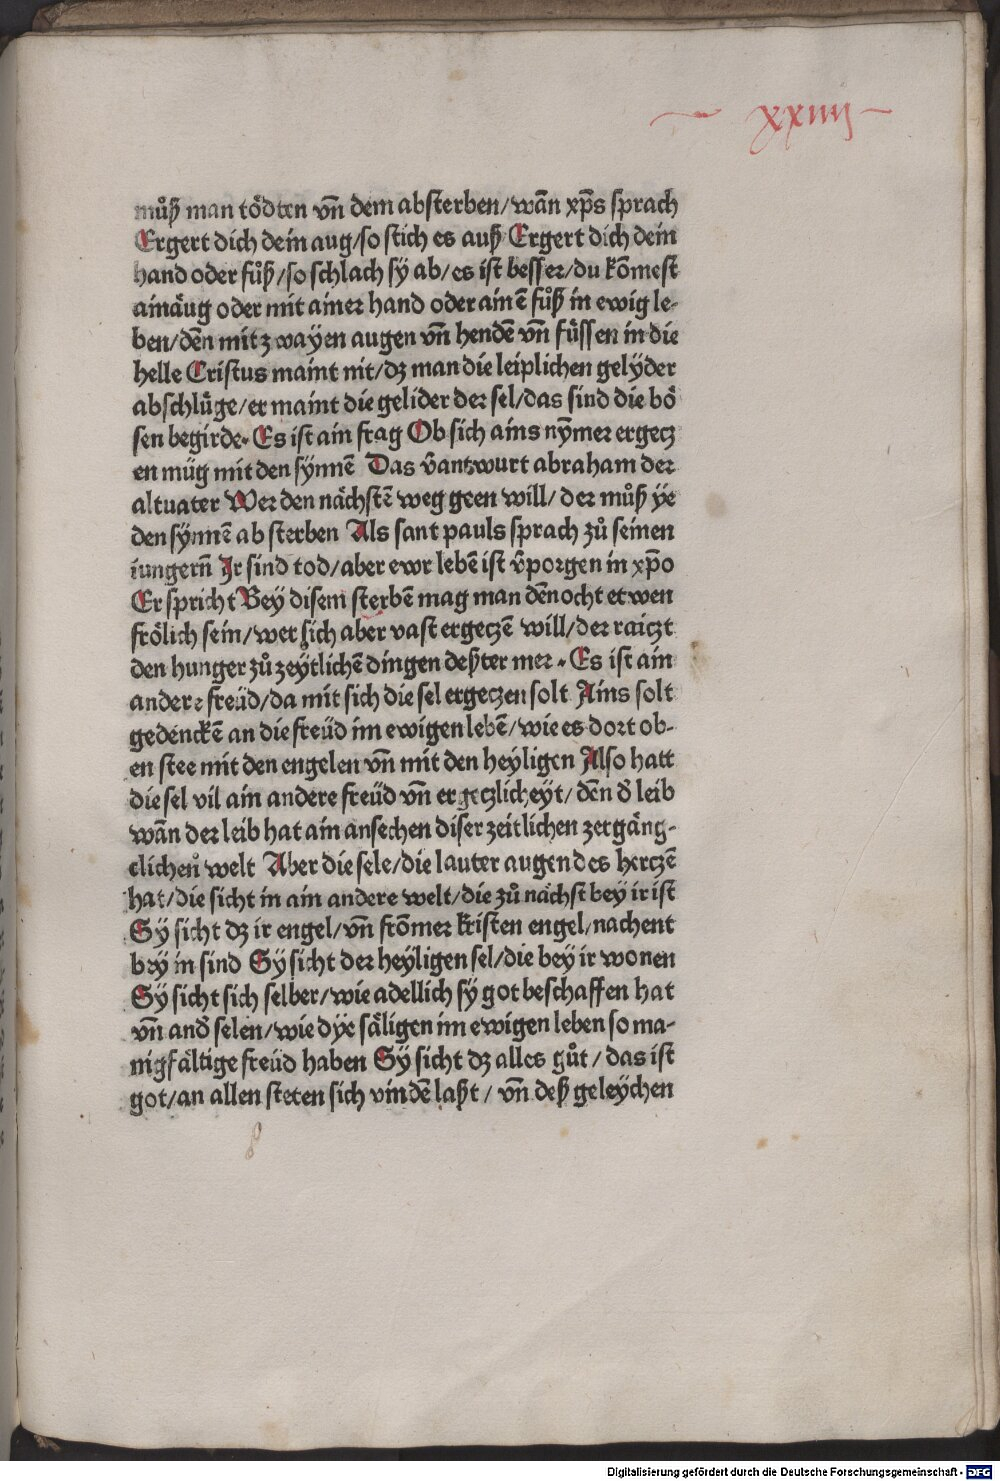 xxiiii
můß man tödten vn̄ dem absterben/wān xp̄s sprach
Ergert dich dein aug/so stich es auß Ergert dich dein
hand oder fůß/so schlach sÿ ab/es ist besser/du kōmest
ainäug oder mit ainer hand oder ainē fůß in ewig le-
ben/dēn mit zwayen augen vn̄ hendē vn̄ füssen in die
helle Cristus maint nit/dz man die leiplichen gelÿder
abschlüge/er maint die gelider der sel/das sind die bö
sen begirde. Es ist ain frag Ob sich ains nȳmer ergecz
en müg mit den sÿnnē Das v̄antwurt abraham der
altuater Wer den nächstē weg geen will/der můß ÿe
den sÿnnē absterben Als sant pauls sprach zů seinen
iungern̄ Ir sind tod/aber ewr lebē ist v̄porgen in xp̄o
Er spricht Bey disem sterbē mag man dēnocht etwen
frölich sein/wer sich aber vast ergeczē will/der raiczt
den hunger zů zeÿtlichē dingen deßter mer. Es ist ain
andere freüd/da mit sich die sel ergeczen solt Ains solt
gedenckē an die freüd im ewigen lebē/wie es dort ob-
en stee mit den engelen vn̄ mit den heyligen Also hatt
die sel vil ain andere freüd vn̄ ergeczlicheyt/dēn d̄ leib
wān der leib hat ain ansechen diser zeitlichen zergäng-
clichen̊ welt Aber die sele/die lauter augen des herczē
hat/die sicht in ain andere welt/die zů nächst bey ir ist
Sy sicht dz ir engel/vn̄ frōmer kristen engel/nachent
bey in sind Sy sicht der heÿligen sel/die bey ir wonen
Sy sicht sich selber/wie adellich sÿ got beschaffen hat
vn̄ and̄ selen/wie dÿe säligen im ewigen leben so ma-
nigfältige freüd haben Sÿ sicht dz alles gůt/das ist
got/an allen steten sich vindē laßt/vn̄ deß geleÿchen
Digitalisierung gefördert durch die Deutsche Forschungsgemeinschaft - DFG